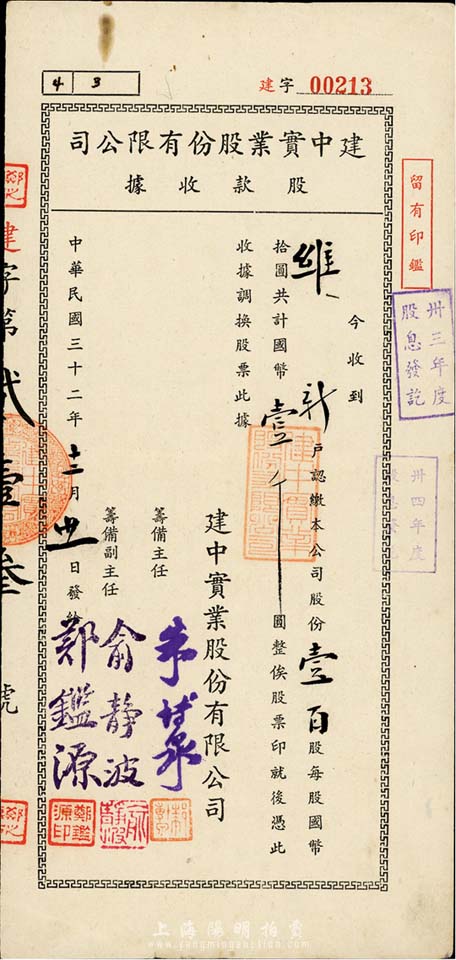 4 3
建字 00213
建中實業股份有限公司
股款收據
留有印鑑
卅三年度
股息發訖
卅四年度
股息發訖
今收到
維新戶認繳本公司股份壹百股每股國幣
拾圓共計國幣壹千圓整俟股票印就後憑此
收據調換股票此據
建中實業股份有限公司
籌備主任
籌備副主任 俞靜波
鄭鑑源
中華民國三十二年十二月廿日發給
建字第貳壹叁號
鄭鑑源印
上海陽明拍賣
www.yangmingauction.com